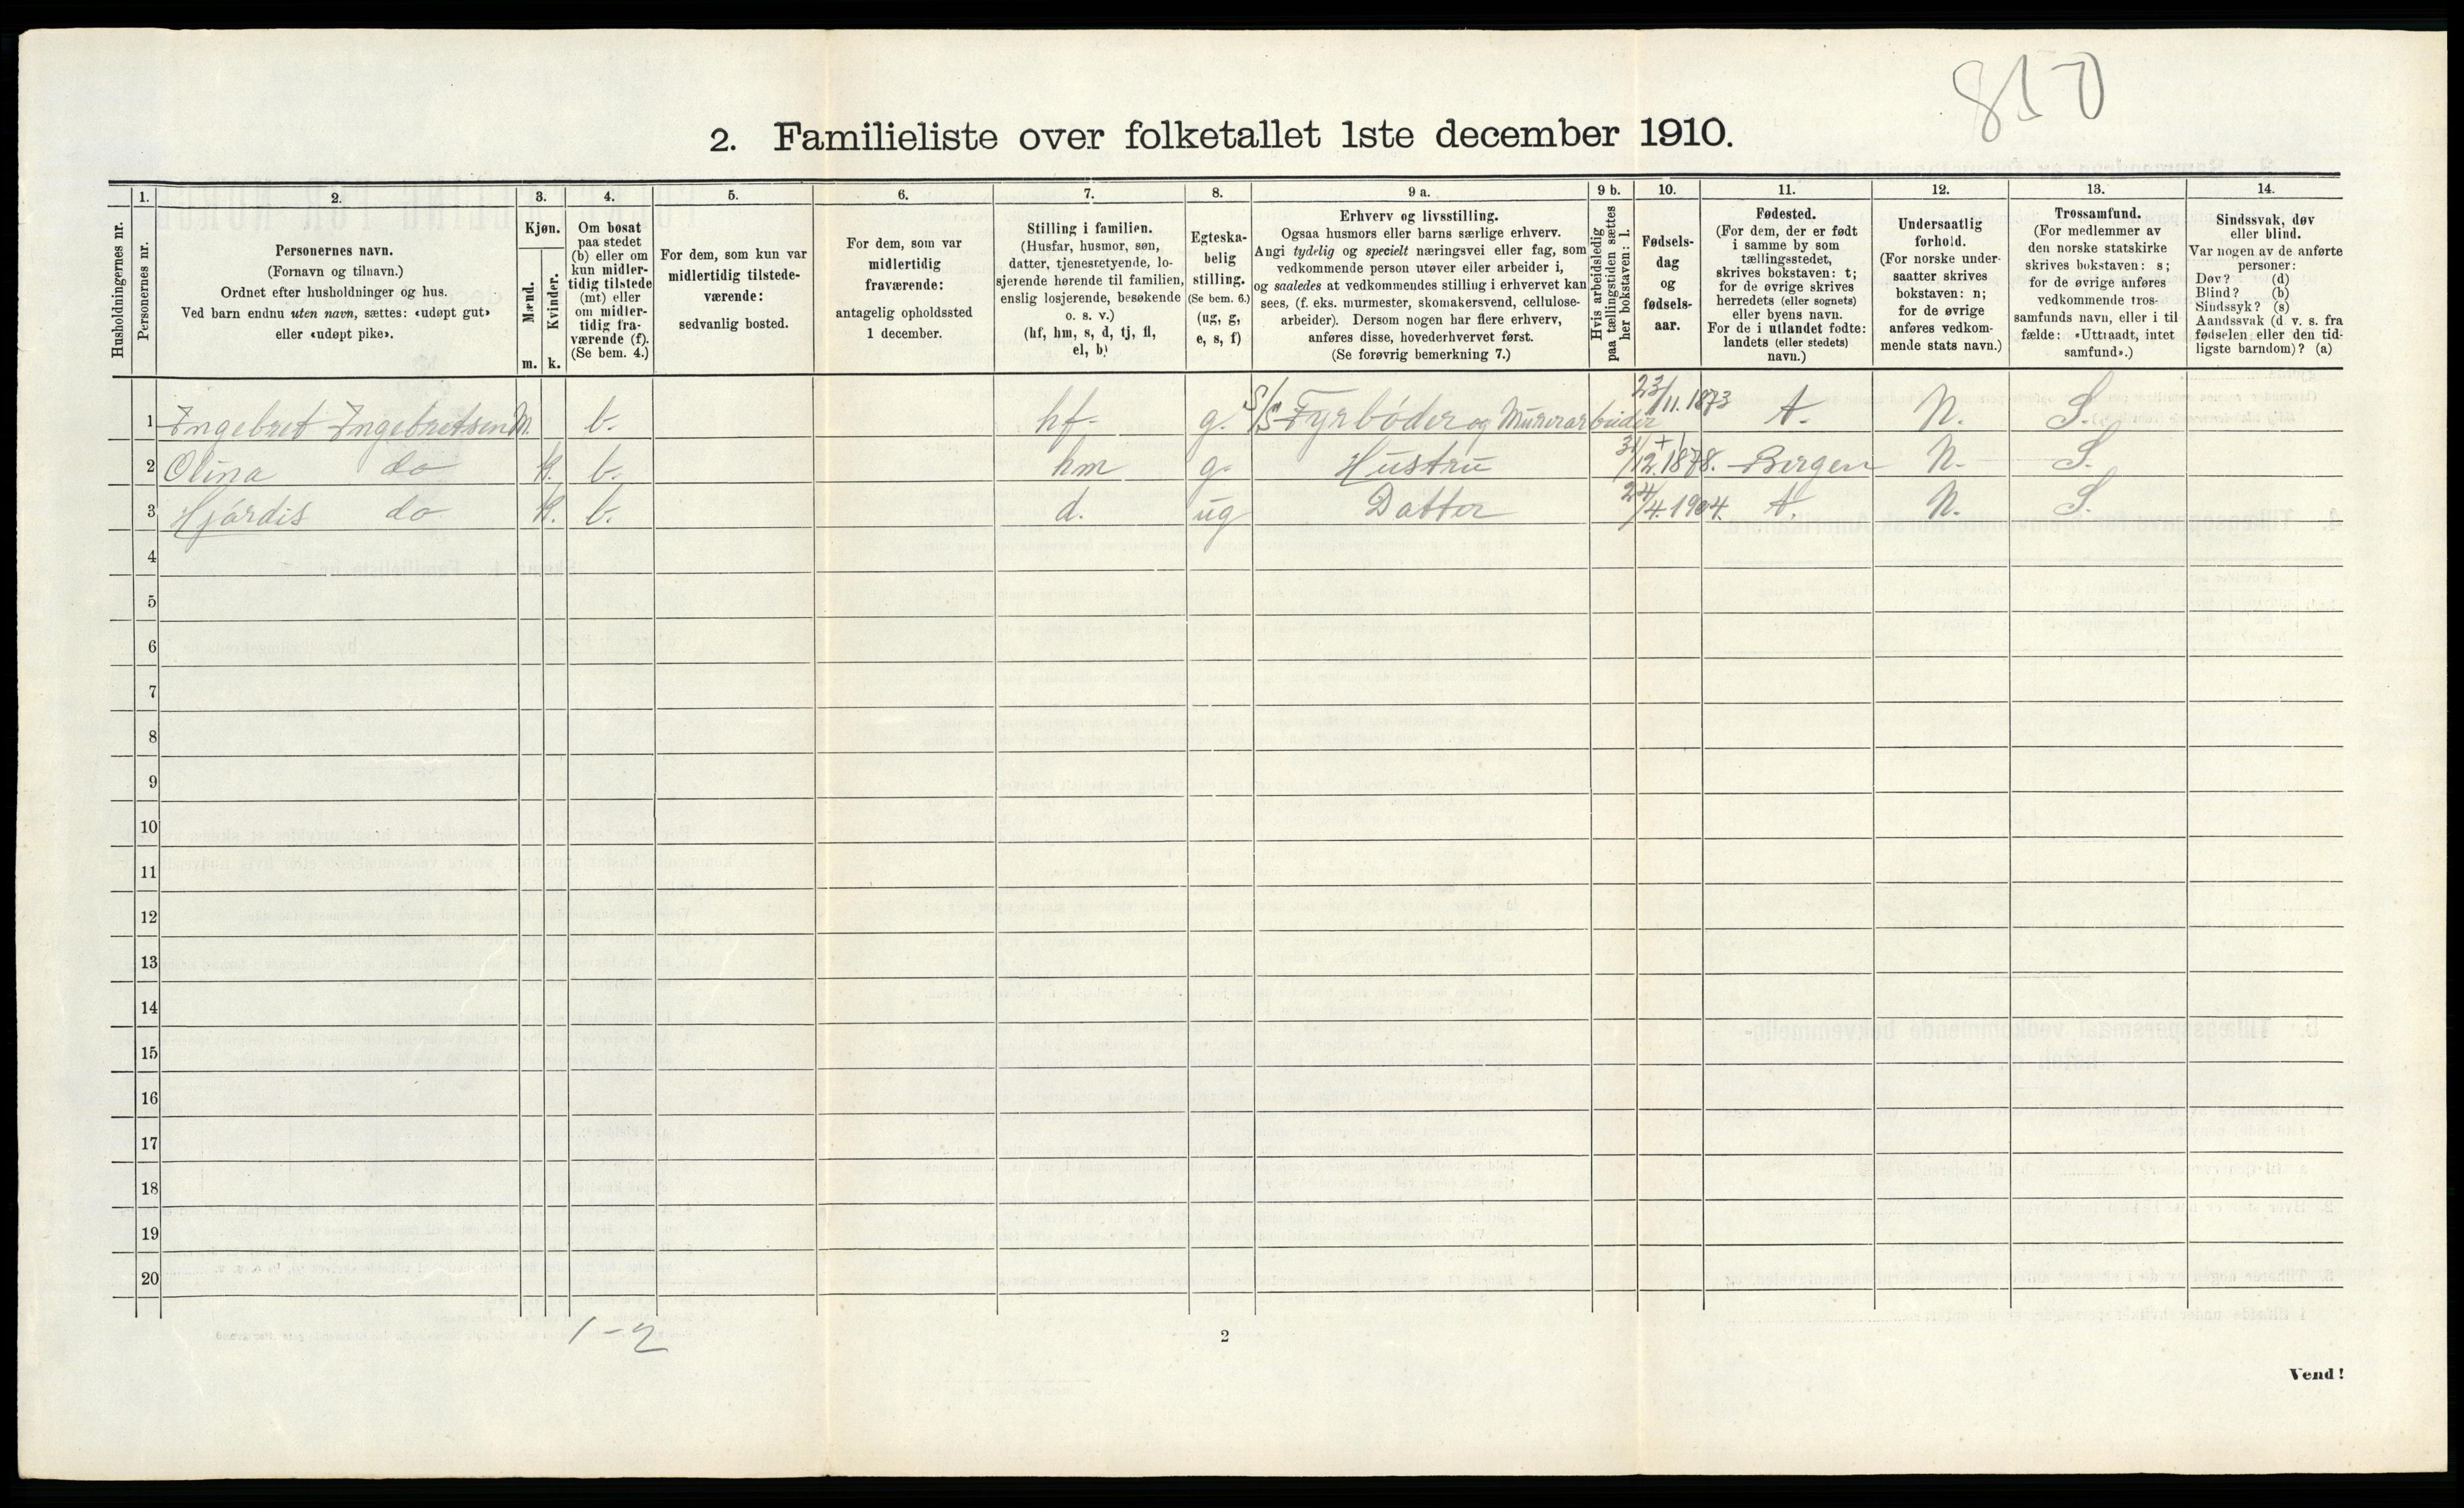 850
2. Familieliste over folketallet 1ste december 1910.
Husholdningernes nr.
1.
Personernes nr.
2.
Personernes navn.
(Fornavn og tilnavn.)
Ordnet efter husholdninger og hus.
Ved barn endnu uten navn, sættes: «udøpt gut»
eller «udøpt pike».
3.
Kjøn.
Mænd.
Kvinder.
m. k.
4.
Om bosat
paa stedet
(b) eller om
kun midler-
tidig tilstede
(mt) eller
om midler-
tidig fra-
værende (f).
(Se bem. 4.)
5.
For dem, som kun var
midlertidig tilstede-
værende:
sedvanlig bosted.
6.
For dem, som var
midlertidig
fraværende:
antagelig opholdssted
1 december.
7.
Stilling i familien.
(Husfar, husmor, søn,
datter, tjenestetyende, lo-
sjerende hørende til familien,
enslig losjerende, besøkende
o. s. v.)
(hf, hm, s, d, tj, fl,
el, b)
8.
Egteska-
belig
stilling.
(Se bem. 6.)
(ug, g,
e, s, f)
9 a.
Erhverv og livsstilling.
Ogsaa husmors eller barns særlige erhverv.
Angi tydelig og specielt næringsvei eller fag, som
vedkommende person utøver eller arbeider i,
og saaledes at vedkommendes stilling i erhvervet kan
sees, (f. eks. murmester, skomakersvend, cellulose-
arbeider). Dersom nogen har flere erhverv,
anføres disse, hovederhvervet først.
(Se forøvrig bemerkning 7.)
9 b.
Hvis arbeidsledig
paa tællingstiden sættes
her bokstaven: l.
10.
Fødsels-
dag
og
fødsels-
aar.
11.
Fødested.
(For dem, der er født
i samme by som
tællingsstedet,
skrives bokstaven: t;
for de øvrige skrives
herredets (eller sognets)
eller byens navn.
For de i utlandet fødte:
landets (eller stedets)
navn.)
12.
Undersaatlig
forhold.
(For norske under-
saatter skrives
bokstaven: n;
for de øvrige
anføres vedkom-
mende stats navn.)
13.
Trossamfund.
(For medlemmer av
den norske statskirke
skrives bokstaven: s;
for de øvrige anføres
vedkommende tros-
samfunds navn, eller i til-
fælde: «Uttraadt, intet
samfund».)
14.
Sindssvak, døv
eller blind.
Var nogen av de anførte
personer:
Døv? (d)
Blind? (b)
Sindssyk? (s)
Aandssvak (d. v. s. fra
fødselen eller den tid-
ligste barndom)? (a)
1 Ingebret Ingebretsen M. b. hf. g. S/S Fyrbøder og Murerarbeider 23/11.1873 t. N. S.
2 Olina do K. b. hm g. Hustru 31/12.1878. Bergen N. S.
3 Hjørdis do K. b. d. ug Datter 24/4.1904. t. N. S.
4
5
6
7
8
9
10
11
12
13
14
15
16
17
18
19
20
1-2
2
Vend!